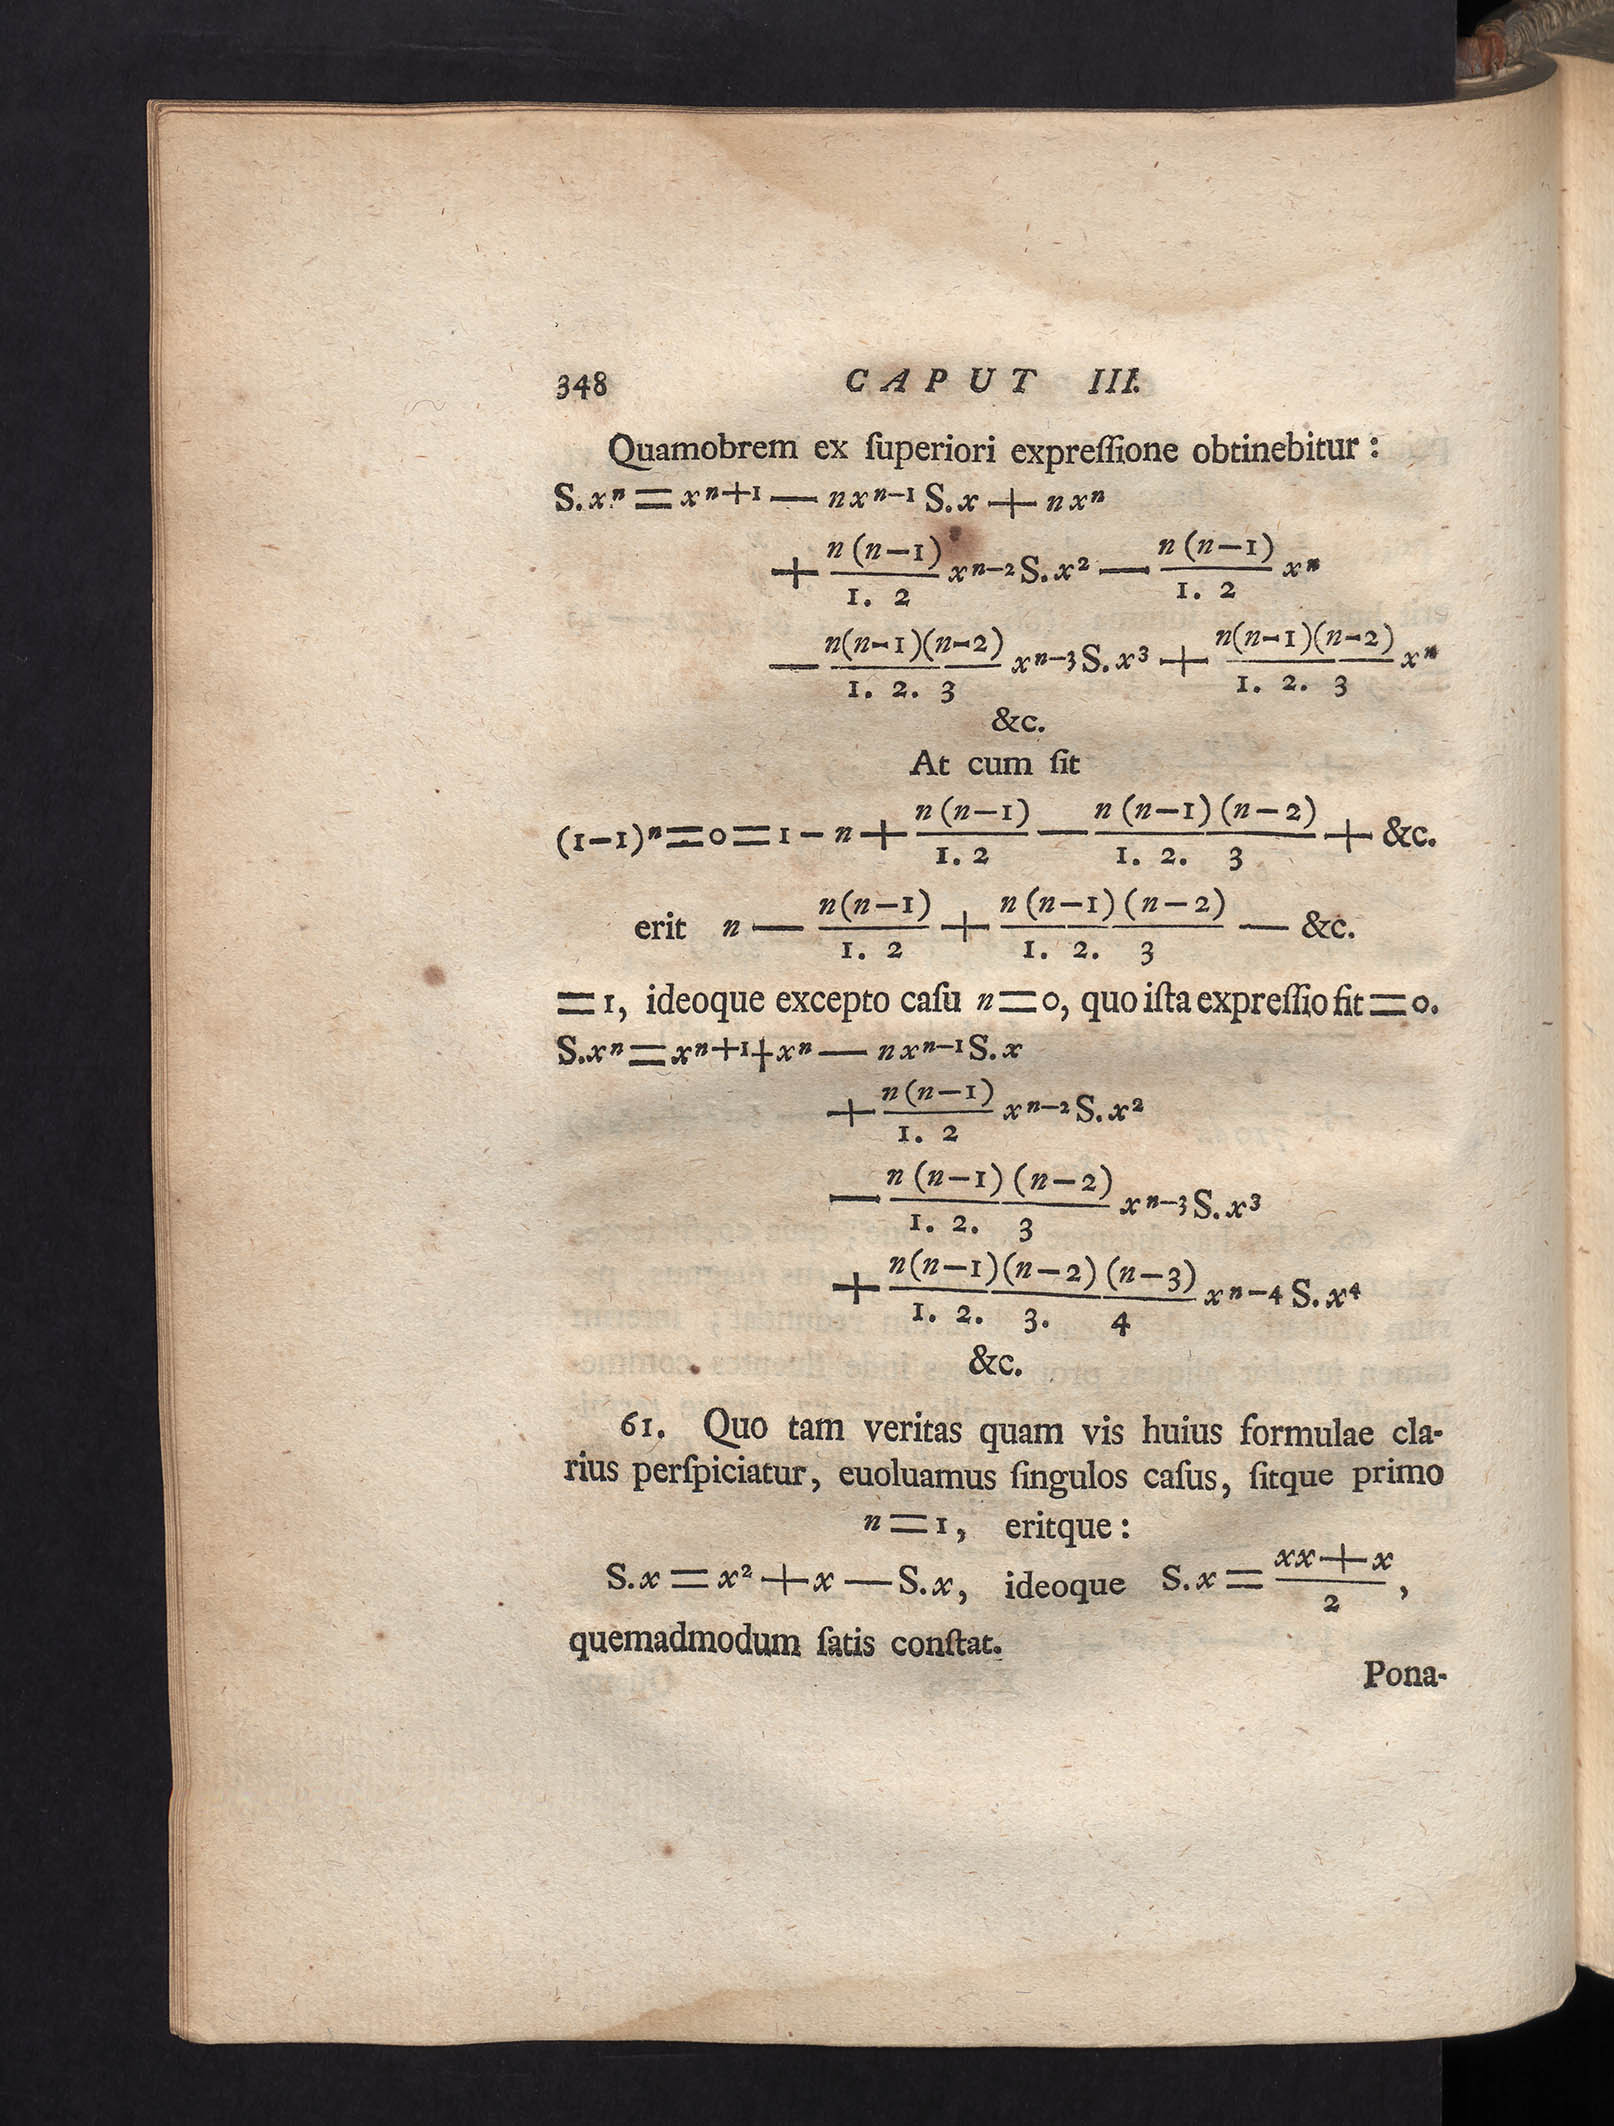 348 CAPUT III.
Quamobrem ex ſuperiori expreſſione obtinebitur:
S.xⁿ = xⁿ⁺¹ — nxⁿ⁻¹ S.x + nxⁿ
+ n(n—1)/1. 2 xⁿ⁻²S.x² — n(n—1)/1. 2 xⁿ
— n(n-1)(n-2)/1. 2. 3 xⁿ⁻³S.x³ + n(n-1)(n-2)/1. 2. 3 xⁿ
&c.
At cum ſit
(1—1)ⁿ = 0 = 1 — n + n(n—1)/1. 2 — n(n—1)(n—2)/1. 2. 3 + &c.
erit n — n(n—1)/1. 2 + n(n—1)(n—2)/1. 2. 3 — &c.
= 1, ideoque excepto caſu n = 0, quo iſta expreſſio fit = 0.
S.xⁿ = xⁿ⁺¹ + xⁿ — nxⁿ⁻¹S.x
+ n(n—1)/1. 2 xⁿ⁻²S.x²
— n(n—1)(n—2)/1. 2. 3 xⁿ⁻³S.x³
+ n(n—1)(n—2)(n—3)/1. 2. 3. 4 xⁿ⁻⁴S.x⁴
&c.
61. Quo tam veritas quam vis huius formulae cla-
rius perſpiciatur, euoluamus ſingulos caſus, ſitque primo
n = 1, eritque:
S.x = x² + x — S.x, ideoque S.x = xx + x/2,
quemadmodum ſatis conſtat.
Pona-